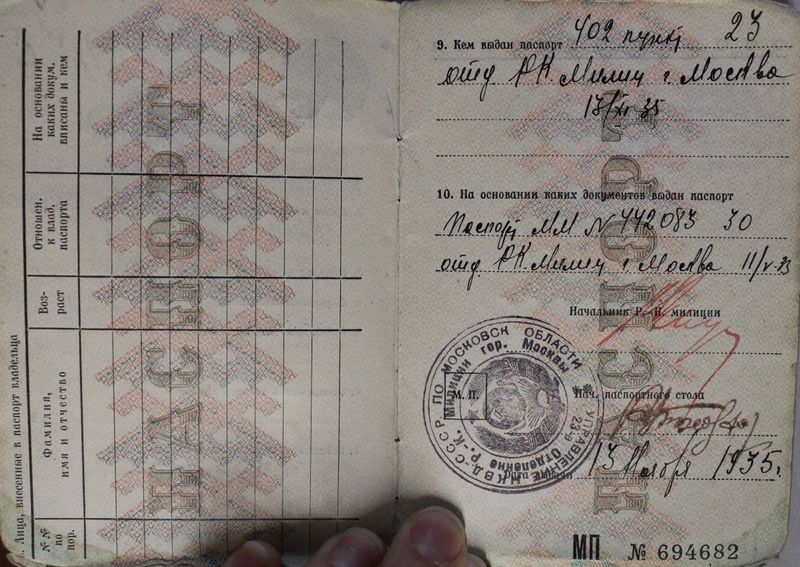 8. Лица, внесенные в паспорт владельца
№№ по пор.
Фамилия, имя и отчество
Воз- раст
Отношен. к влад. паспорта
На основании каких докум. вписаны и кем
ПАСПОРТ
9. Кем выдан паспорт 402 пункт 23
отд РК Милиц г. Москва
13/XI 35
10. На основании каких документов выдан паспорт
Паспорт ММ № 442083 30
отд РК Милиц г Москва 11/V-33
Начальник Р.-К. милиции
М. П.
Нач. паспортного стола
Дата выдачи 13 Ноября 1935г.
УПРАВЛЕНИЕ НКВД-СССР ПО МОСКОВСК ОБЛАСТИ
23-е Отделение Р.-К. Милиции гор. Москвы
ПАСПОРТ
МП № 694682